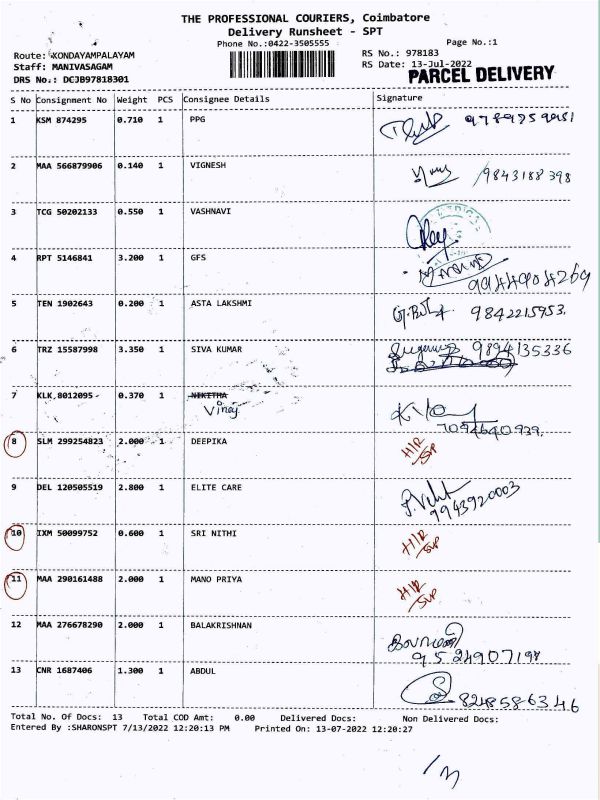 THE PROFESSIONAL COURIERS, Coimbatore
Delivery Runsheet - SPT
Phone No.:0422-3505555
Page No.:1
Route: KONDAYAMPALAYAM
RS No.: 978183
Staff: MANIVASAGAM
RS Date: 13-Jul-2022
DRS No.: DCJB97818301
PARCEL DELIVERY
S No Consignment No Weight PCS Consignee Details Signature
1 KSM 874295 0.710 1 PPG
2 MAA 566879906 0.140 1 VIGNESH 9843188398
3 TCG 50202133 0.550 1 VASHNAVI
4 RPT 5146841 3.200 1 GFS
9944904269
5 TEN 1902643 0.200 1 ASTA LAKSHMI 9842215953.
6 TRZ 15587998 3.350 1 SIVA KUMAR 9894135336
7 KLK 8012095 0.370 1 NIKITHA
Vinay
7094640939.
8 SLM 299254823 2.000 1 DEEPIKA H/R
SVP
9 DEL 120505519 2.800 1 ELITE CARE
9943920003
10 IXM 50099752 0.600 1 SRI NITHI H/R
SVP
11 MAA 290161488 2.000 1 MANO PRIYA H/R
SVP
12 MAA 276678290 2.000 1 BALAKRISHNAN
13 CNR 1687406 1.300 1 ABDUL
8248586346
Total No. Of Docs: 13 Total COD Amt: 0.00 Delivered Docs: Non Delivered Docs:
Entered By :SHARONSPT 7/13/2022 12:20:13 PM Printed On: 13-07-2022 12:20:27